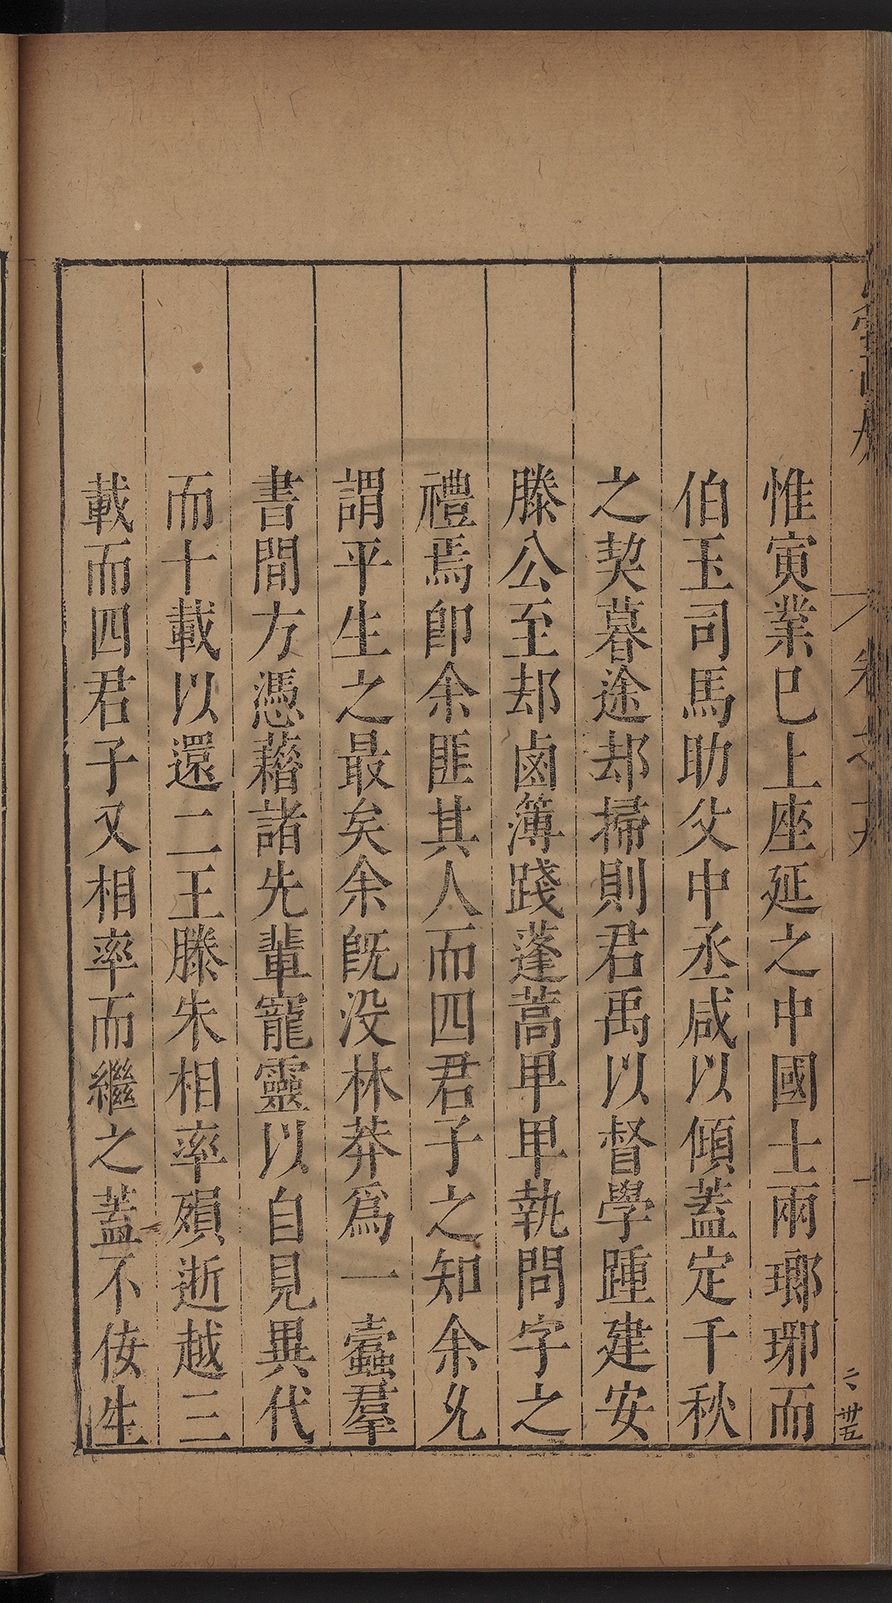 惟寅業巳上座延之中國士兩瑯琊而
伯玉司馬助父中丞咸以傾蓋定千秋
之契暮途却掃則君禹以督學踵建安
滕公至却鹵簿踐蓬蒿甲甲執問字之
禮焉卽余匪其人而四君子之知余允
謂平生之最矣余旣没林莽爲一蠹羣
書間方憑藉諸先輩寵靈以自見異代
而十載以還二王滕朱相率殞逝越三
載而四君子又相率而繼之蓋不佞生
卷之
二